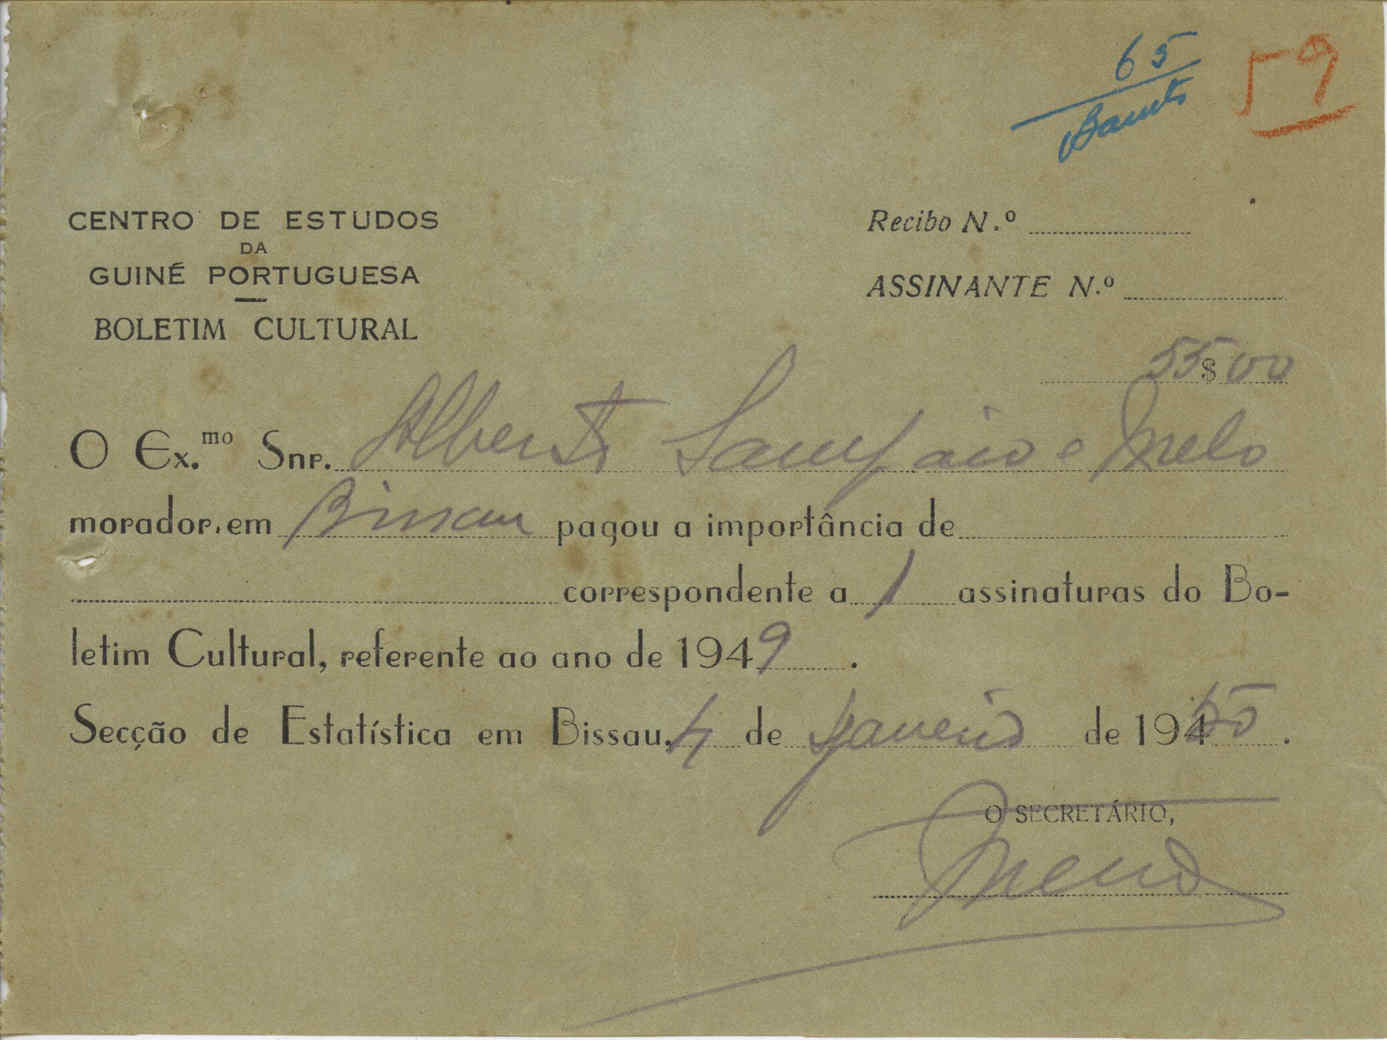 65
59
CENTRO DE ESTUDOS
DA
GUINÉ PORTUGUESA
BOLETIM CULTURAL
Recibo N.º
ASSINANTE N.º
55$00
O Ex.mo Snr. Alberto Sampaio e Melo
morador em Bissau pagou a importância de
correspondente a 1 assinaturas do Bo-
letim Cultural, referente ao ano de 1949.
Secção de Estatística em Bissau, 4 de Janeiro de 1950.
O SECRETÁRIO,